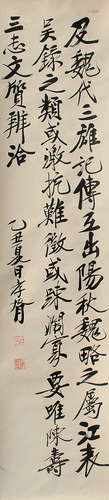 及魏代三雄記傳互出陽秋魏略之屬江表
吳錄之類或激抗難徵或疎闊寡要唯陳壽
三志文質辨洽
乙丑夏日孝胥